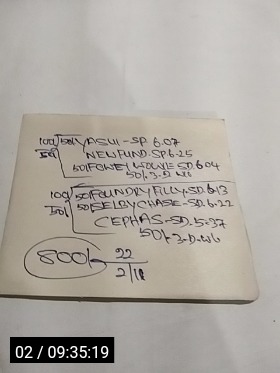 100/ 50/ YASUI-SP 6.07
50/ NEWFUND-SP6-25
50/ SD.6.04
50/.3-D W6
100/ 50/ FOUNDRY FILLY-SD.6.13
50/ 50/ SELBY CHASE-SD.6.22
CEPHAS-SD.5-37
50/.3-D.W6
800/- 22
2/11
02 / 09:35:19